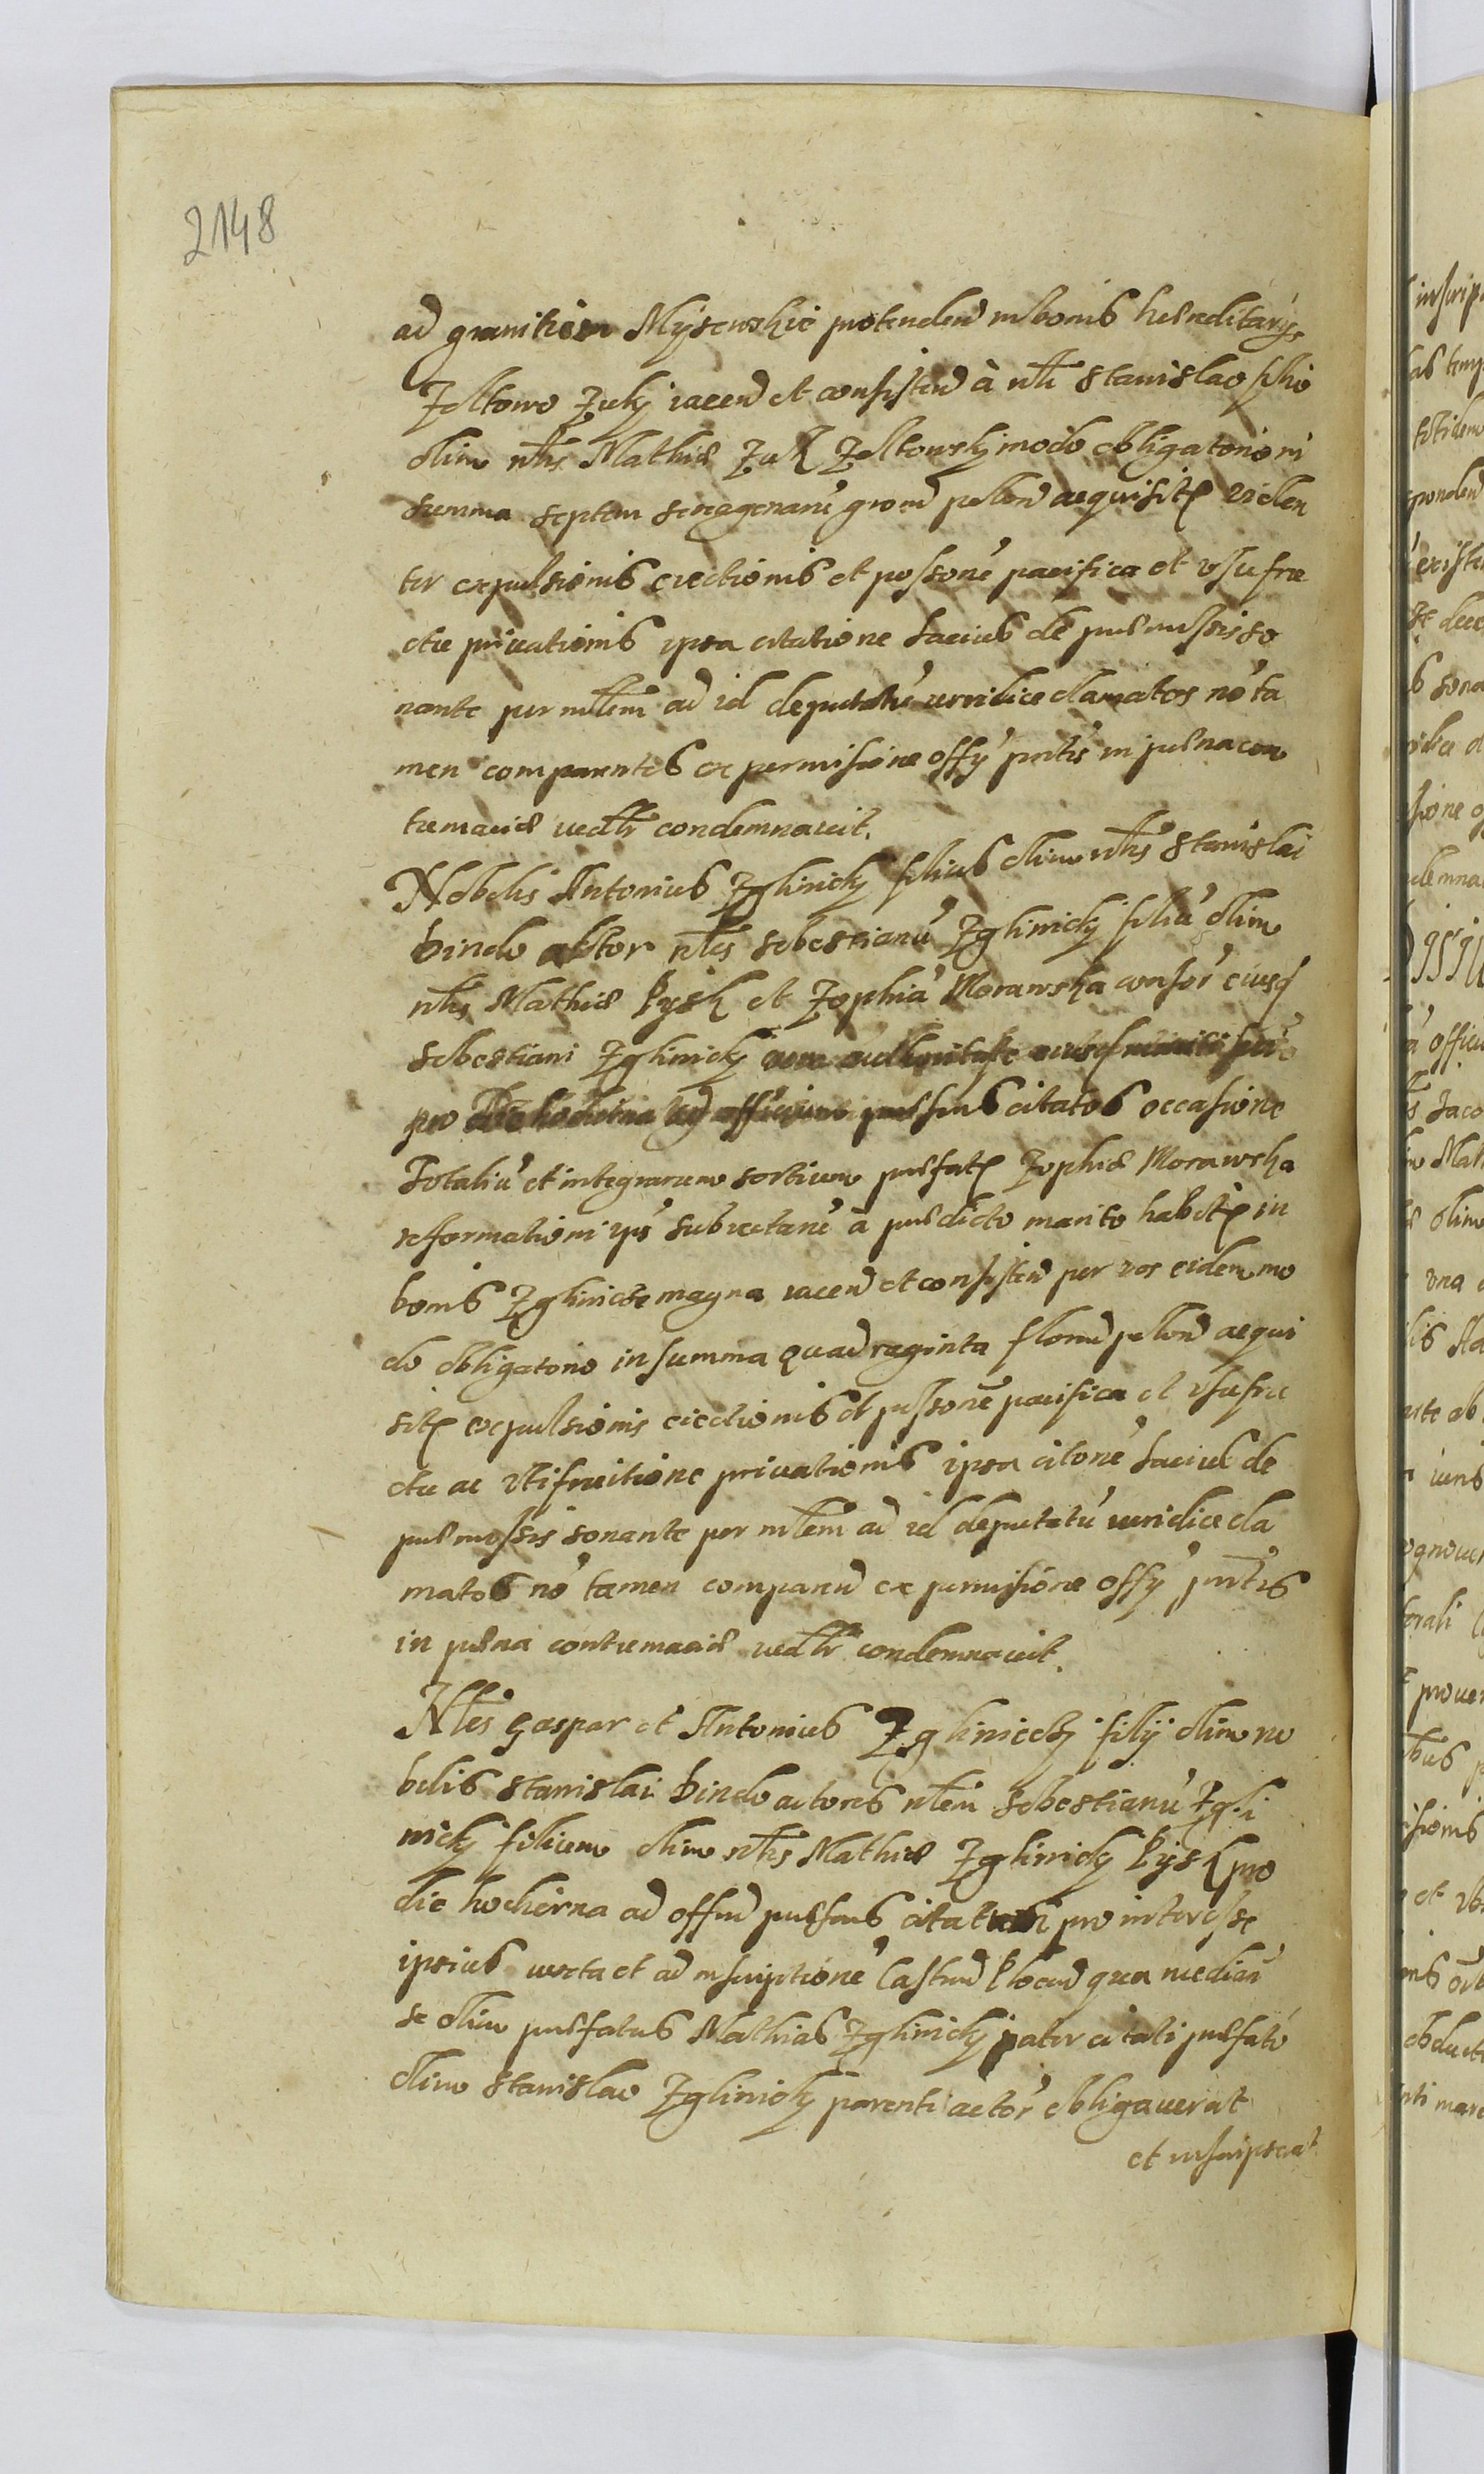 2148
ad granitiem Mysewskie protenden in bonis haereditarijs
Zoltowo Zuki iacen et consisten à nbli Stanislao filio
olim nblis Mathiae Zuk Zoltowskj modo obligatorio in
summa septem sexagenarũ grosd pollond acquisitȩ violen
ter expulsionis eiectionis et possonẽ pacifica et vsufru
ctu priuationis ipsa citatione lacius de praemissis so
nante per mltem ad id deputatũ veridice clamatos nõ ta
men comparentes ex permissione offÿ pntis in paena con
tumaciae uedlr condemnauit.
Nobilis Antonius Zglinicky filius olim nblis Stanislai
Bindo aktor nbles Sebestianũ Zglinicky filiũ olim
nblis Mathiae Pysk et Zophiã Morawska consor eiusd
Sebestiani Zglinicky cum authoritate eiusd mariti sui
pro die hodierna ad officium praesens citatos occasione
Totaliũ et integrarum sortium praefatȩ Zophiae Morawska
reformationi ips subiectarũ à praedicto marito habitȩ in
bonis Zglinicze magna iacen et consisten per vos eidem mo
do obligatorio in summa quadraginta florend pollond acqui
sitȩ expulsionis eiectionis et possonẽ pacifica et vsufru
ctu ac vtifruitione priuationis ipsa citonẽ lacius de
praemissis sonante per mltem ad id deputatũ veridice cla
matos nõ tamen comparen ex permissione offÿ pntis
in paena contumaciae uedlr condemnauit.
Nbles Gaspar et Antonius Zgliniccky filÿ olim no
bilis Stanislai Bindo actores nblem Sebestianũ Zgli
nicky filium olim nblis Mathiae Zglinicky Pysk pro
die hodierna ad offind praesens citatum pro interesse
ipsius iuxta et ad inscriptionẽ Castrend Plocend qua mediañ
se olim praefatus Mathias Zglinicky pater citati praefato
olim Stanislao Zglinicky parenti actor obligauerat
et inscripserat